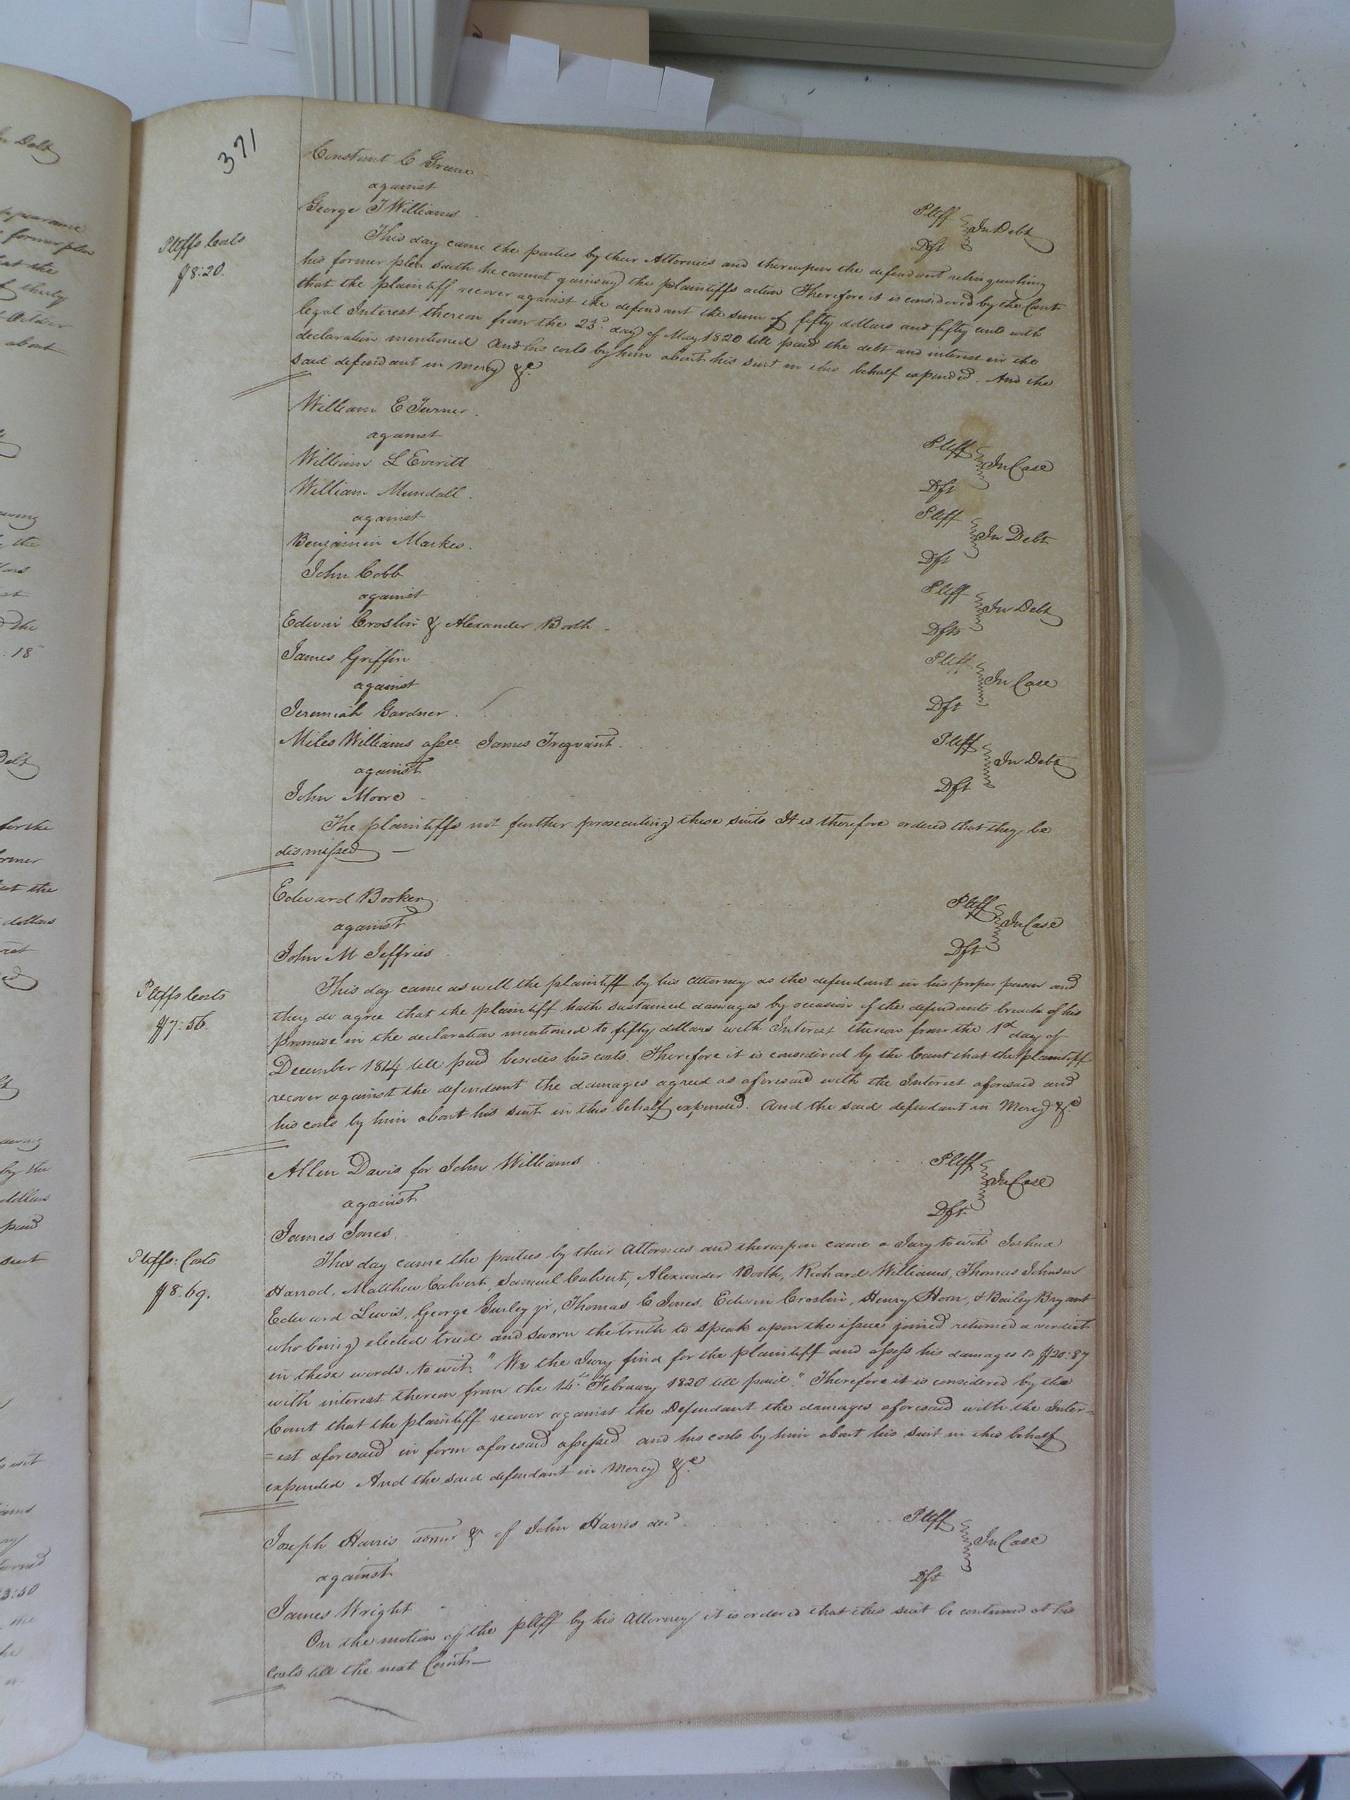 371
Constant C Greene
against
George T Williams
Pltff
Dft
In Debt
Pltffs Costs
$8:20.
This day came the parties by their Attornies and thereupon the defendant relinquishing
his former plea saith he cannot gainsay the plaintiffs action Therefore it is considered by the Court
that the plaintiff recover against the defendant the sum of fifty dollars and fifty cents with
legal Interest thereon from the 23d day of May 1820 till paid the debt and interest in the
declaration mentioned And his costs by him about his suit in this behalf expended. And the
said defendant in mercy &c.
William E Turner.
against
William L Everitt
Pltff
Dft
In Case
William Mundall.
against
Benjamin Markes.
Pltff
Dft
In Debt
John Cobb
against
Edwin Croslin & Alexander Booth
Pltff
Dfts
In Debt
James Griffin
against
Jeremiah Gardner.
Pltff
Dft
In Case
Miles Williams assee James Trezvant.
against
John Moore
Pltff
Dft
In Debt
The plaintiffs not further prosecuting these suits It is therefore ordered that they be
dismissed
Edward Booker
against
John M Jeffries
Pltff
Dft
In Case
Pltffs Costs
$7:56.
This day came as well the plaintiff by his Attorney as the defendant in his proper person and
they do agree that the plaintiff hath sustained damages by occasion of the defendants breach of his
promise in the declaration mentioned to fifty dollars with Interest thereon from the 1st day of
December 1814 till paid besides his costs. Therefore it is considered by the Court that the plaintiff
recover against the defendant the damages agreed as aforesaid with the Interest aforesaid and
his costs by him about his suit in this behalf expended. And the said defendant in Mercy &c
Allen Davis for John Williams
against
James Jones.
Pltff
Dft.
In Case
Pltffs: Costs
$8:69.
This day came the parties by their Attornies and thereupon came a Jury to wit Joshua
Harrod, Matthew Calvert, Samuel Calvert, Alexander Booth, Richard Williams, Thomas Johnson
Edward Lewis, George Gurley jr, Thomas C Jones, Edwin Croslin, Henry Horn, & Bailey Bryant
who being elected tried and sworn the truth to speak upon the issue joined returned a verdict
in these words, to wit, "We the Jury find for the plaintiff and assess his damages to $20:87
with interest thereon from the 14th February 1820 till paid." Therefore it is considered by the
Court that the plaintiff recover against the Defendant the damages aforesaid with the Inter=
=est aforesaid in form aforesaid assessed and his costs by him about his suit in this behalf
expended And the said defendant in Mercy &c
Joseph Harris admr &c of John Harris decd.
against
James Wright
Pltff
Dft
In Case
On the motion of the pltff by his Attorney it is ordered that this suit be continued at his
Costs till the next Court